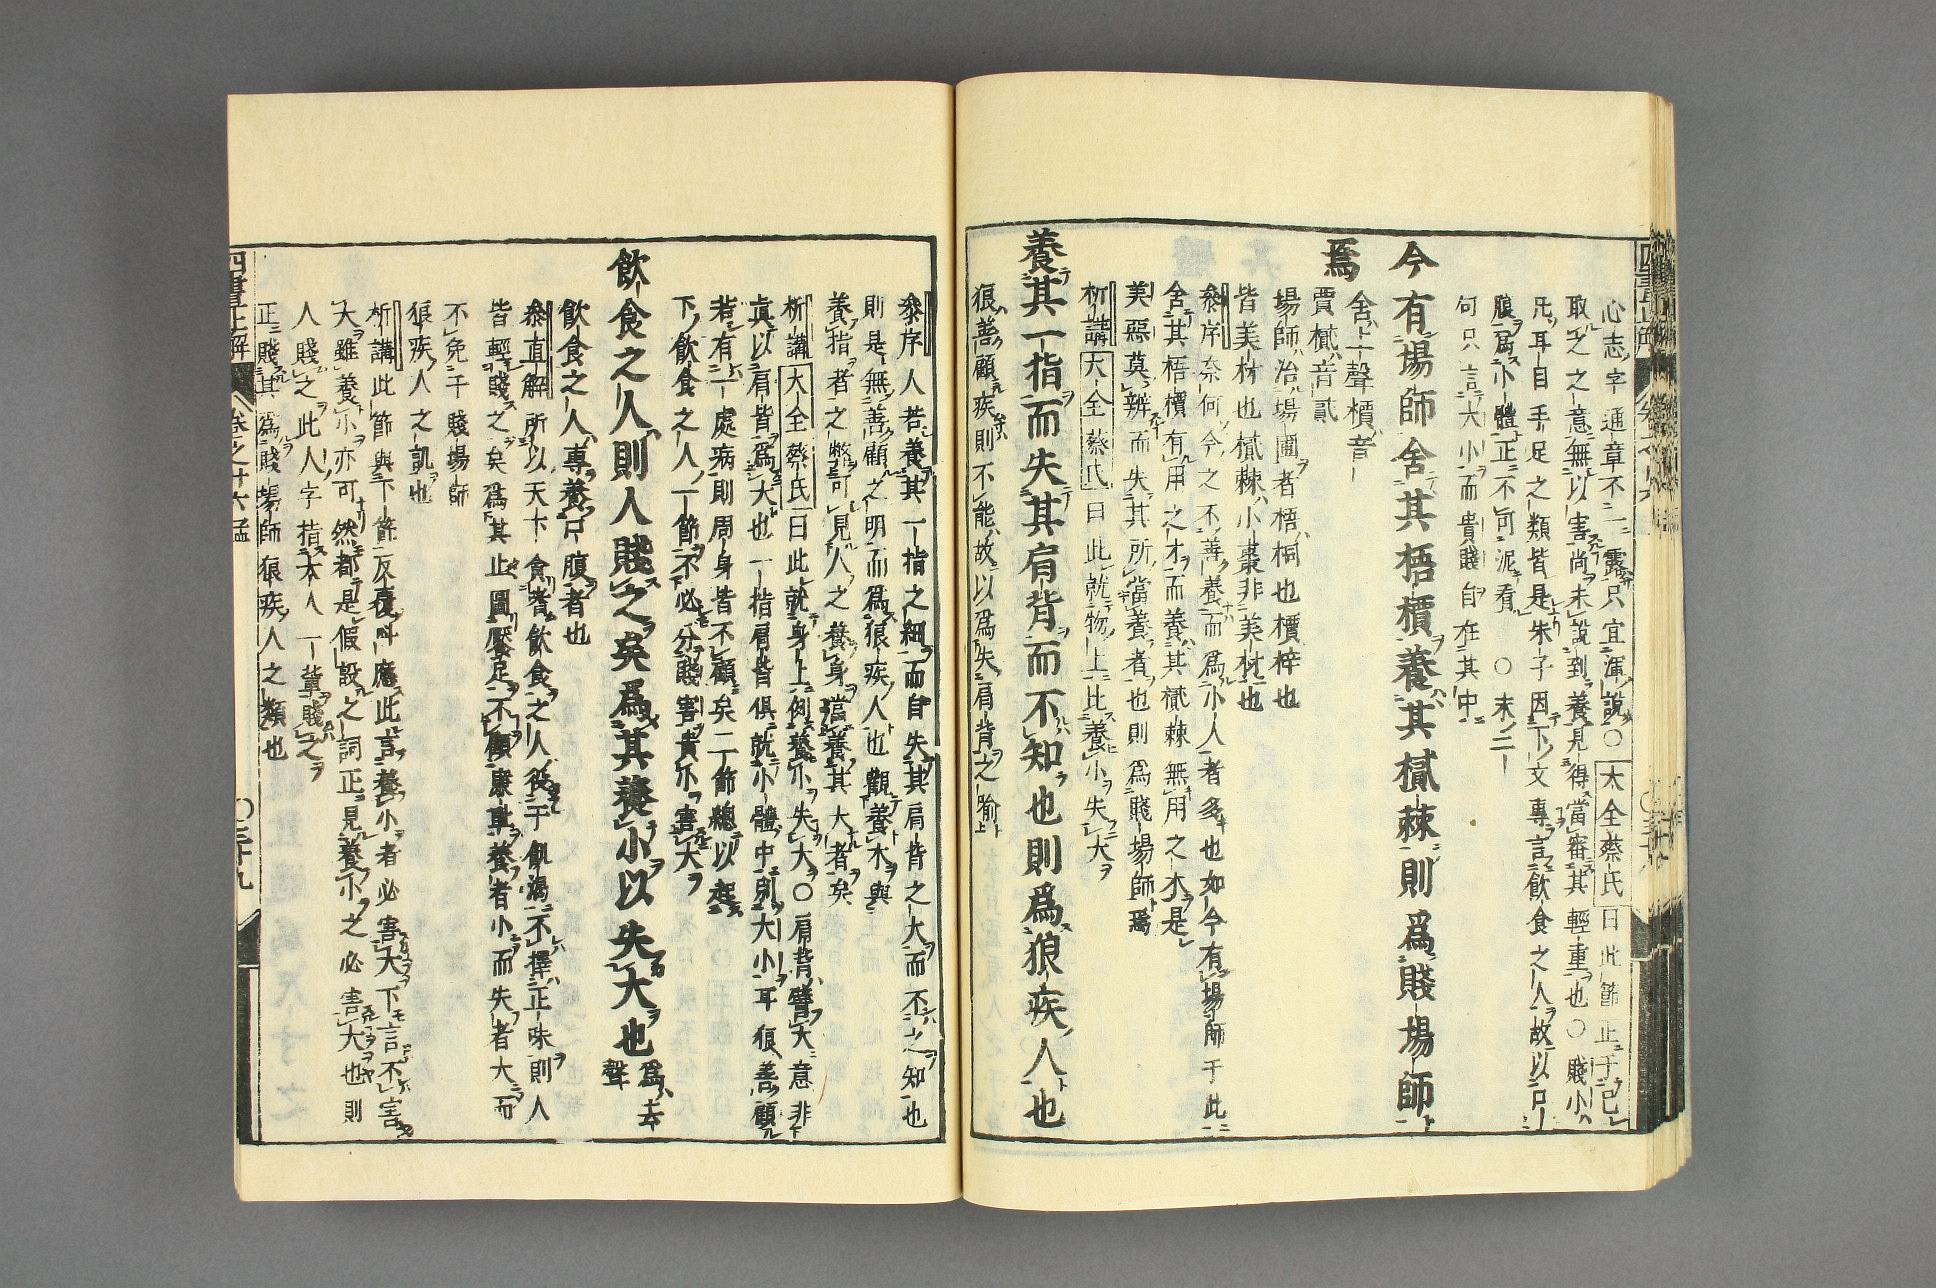 心志字通章不一露只宜渾說○大全蔡氏曰此節正于己
取之之意無以害尚未說到養見得當審其輕重也○賤小
凡耳目手足之類皆是朱子因下文專言飲食之人故以口
腹爲小體正不可泥看○末二
何只言大小而貴賤自在其中
今有場師舍其梧檟養其樲棘則爲賤場師
焉
舍上聲檟音
賈樲音貳
場師治場圃者梧桐也檟梓也
皆美材也樲棘小棗非美材也
叅序奈何今之不善養而爲小人者多也如今有場師于此
舍其梧檟有用之才而養其樲棘無用之木是
美惡莫辨而失其所當養者也則爲賤場師焉
析講大全蔡氏曰此就物上比養小失大
養其一指而失其肩背而不知也則爲狼疾人也
狼善顧疾則不能故以爲失肩背之喻
叅序人若養其一指之細而自失其肩背之大而不之知也
則是無善顧之明而爲狼疾人也觀養木與
養指者之弊可見人之養身當養其大者矣
析講大全蔡氏曰此就身上例養小失大○肩背譬大意非
眞以肩背爲大也一指肩背俱就小體中別大小耳狼善顧
若有一處病則周身皆不顧矣二節總以起
下飲食之人一節不必分賤害貴小害大
飲食之人則人賤之矣爲其養小以失大也爲去
聲
飲食之人專養口腹者也
叅直解所以天下食者飲食之人役于飢渴不擇正味則人
皆輕賤之矣爲其止圖饜足不顧廉恥養者小而失者大而
不免于賤場師
狼疾人之譏也
析講此節與下節反覆呌應此言養小者必害大下言不害
大雖養小亦可然都是假設之詞正見養小之必害大也則
人賤之此人字指大人一輩賤之
正賤其爲賤場師狼疾人之類也
四書正解
卷之十六孟
○三十九